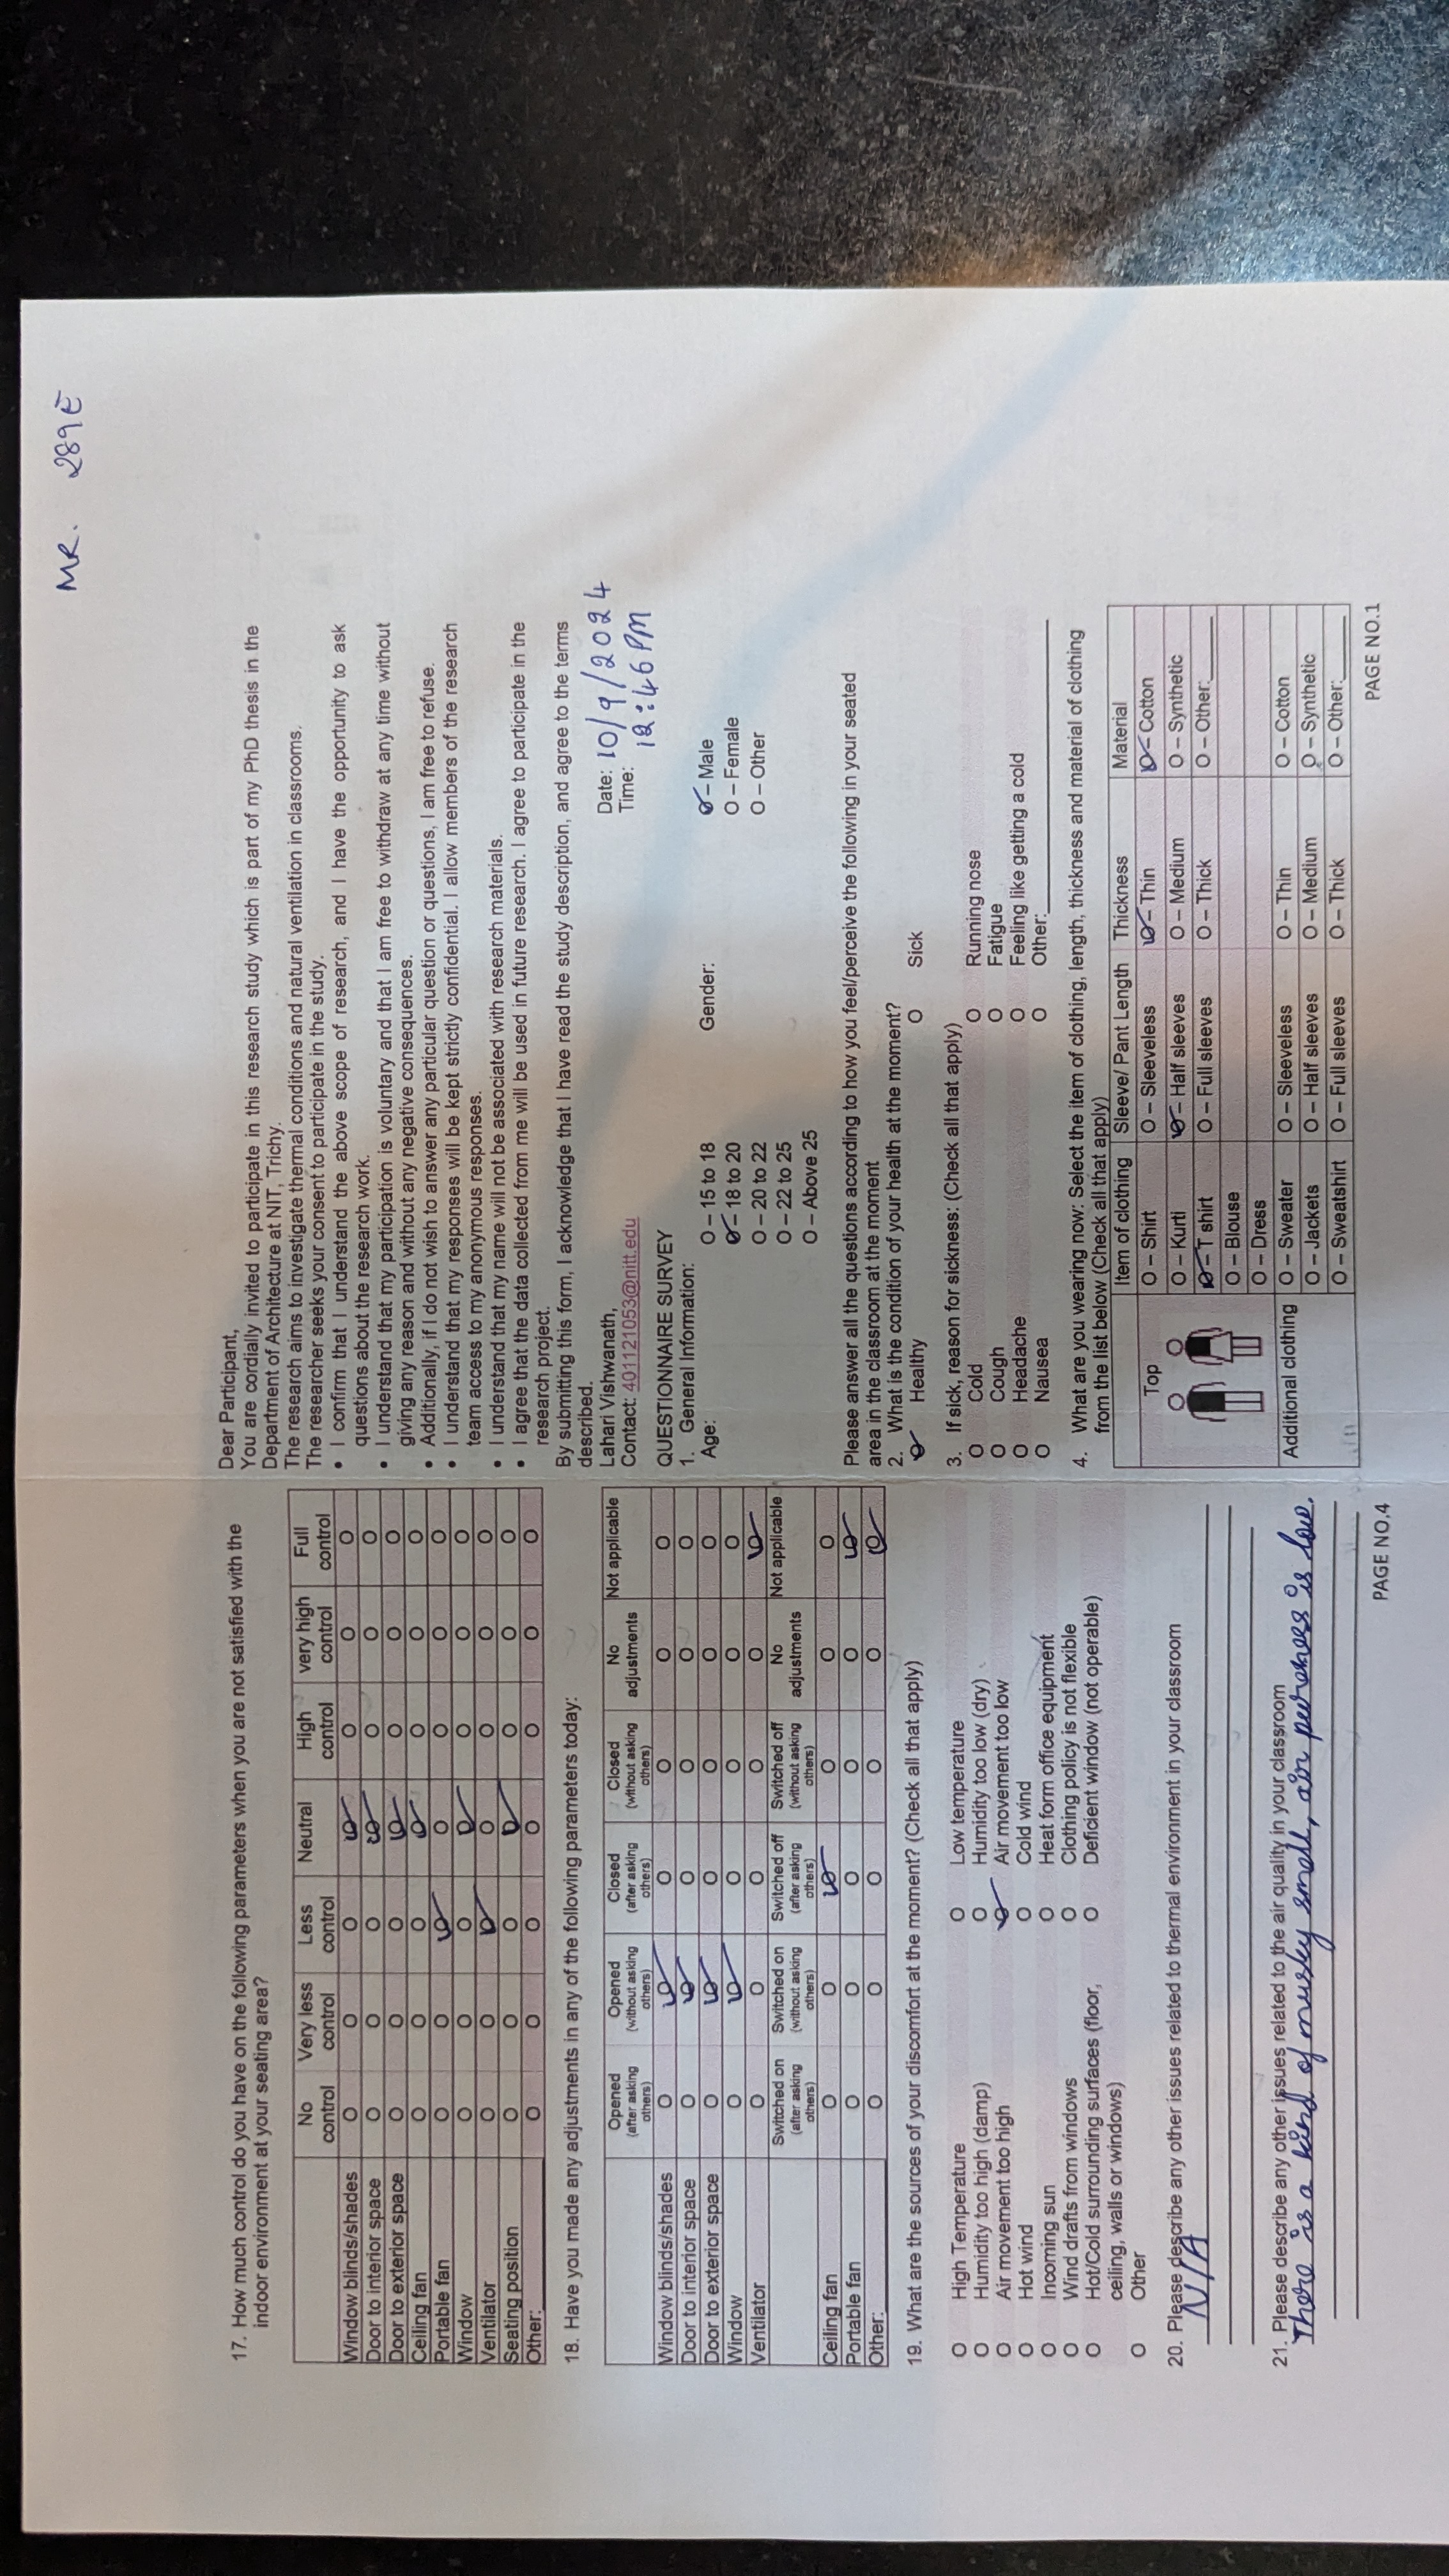 MR. 289E
17. How much control do you have on the following parameters when you are not satisfied with the
indoor environment at your seating area?
No control | Very less control | Less control | Neutral | High control | very high control | Full control
Window blinds/shades
Door to interior space
Door to exterior space
Ceiling fan
Portable fan
Window
Ventilator
Seating position
Other:
18. Have you made any adjustments in any of the following parameters today:
Opened (after asking others) | Opened (without asking others) | Closed (after asking others) | Closed (without asking others) | No adjustments | Not applicable
Window blinds/shades
Door to interior space
Door to exterior space
Window
Ventilator
Switched on (after asking others) | Switched on (without asking others) | Switched off (after asking others) | Switched off (without asking others) | No adjustments | Not applicable
Ceiling fan
Portable fan
Other:
19. What are the sources of your discomfort at the moment? (Check all that apply)
O High Temperature
O Humidity too high (damp)
O Air movement too high
O Hot wind
O Incoming sun
O Wind drafts from windows
O Hot/Cold surrounding surfaces (floor,
ceiling, walls or windows)
O Other
O Low temperature
O Humidity too low (dry)
O Air movement too low
O Cold wind
O Heat form office equipment
O Clothing policy is not flexible
O Deficient window (not operable)
20. Please describe any other issues related to thermal environment in your classroom
N/A
21. Please describe any other issues related to the air quality in your classroom
There is a kind of musky small, air pureness is low.
PAGE NO.4
Dear Participant,
You are cordially invited to participate in this research study which is part of my PhD thesis in the
Department of Architecture at NIT, Trichy.
The research aims to investigate thermal conditions and natural ventilation in classrooms.
The researcher seeks your consent to participate in the study.
• I confirm that I understand the above scope of research, and I have the opportunity to ask
questions about the research work.
• I understand that my participation is voluntary and that I am free to withdraw at any time without
giving any reason and without any negative consequences.
• Additionally, if I do not wish to answer any particular question or questions, I am free to refuse.
• I understand that my responses will be kept strictly confidential. I allow members of the research
team access to my anonymous responses.
• I understand that my name will not be associated with research materials.
• I agree that the data collected from me will be used in future research. I agree to participate in the
research project.
By submitting this form, I acknowledge that I have read the study description, and agree to the terms
described.
Lahari Vishwanath,
Contact: 401121053@nitt.edu
Date: 10/9/2024
Time: 12:46 PM
QUESTIONNAIRE SURVEY
1. General Information:
Age:
O – 15 to 18
O – 18 to 20
O – 20 to 22
O – 22 to 25
O – Above 25
Gender:
O – Male
O – Female
O – Other
Please answer all the questions according to how you feel/perceive the following in your seated
area in the classroom at the moment
2. What is the condition of your health at the moment?
O Healthy O Sick
3. If sick, reason for sickness: (Check all that apply)
O Cold O Running nose
O Cough O Fatigue
O Headache O Feeling like getting a cold
O Nausea O Other:
4. What are you wearing now: Select the item of clothing, length, thickness and material of clothing
from the list below (Check all that apply)
Item of clothing | Sleeve/ Pant Length | Thickness | Material
Top
O – Shirt | O – Sleeveless | O – Thin | O – Cotton
O – Kurti | O – Half sleeves | O – Medium | O – Synthetic
O – T shirt | O – Full sleeves | O – Thick | O – Other:
O – Blouse
O – Dress
Additional clothing
O – Sweater | O – Sleeveless | O – Thin | O – Cotton
O – Jackets | O – Half sleeves | O – Medium | O – Synthetic
O – Sweatshirt | O – Full sleeves | O – Thick | O – Other:
PAGE NO.1